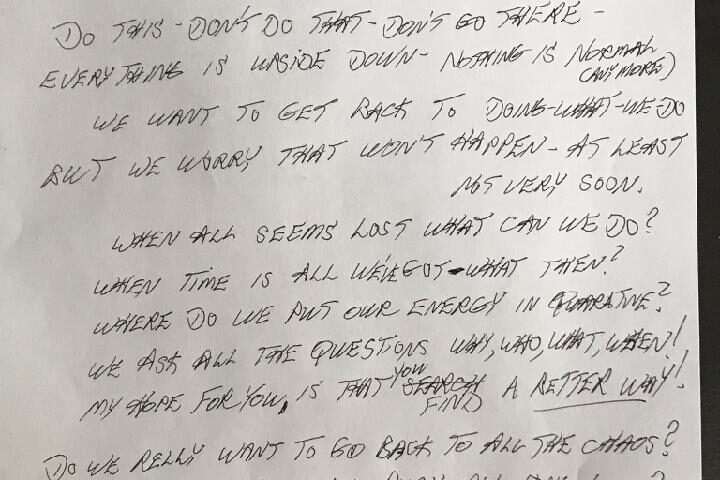 DO THIS - DON'T DO THAT - DON'T GO THERE -
EVERYTHING IS UPSIDE DOWN - NOTHING IS NORMAL
(ANY MORE)
WE WANT TO GET BACK TO DOING-WHAT-WE-DO
BUT WE WORRY THAT WON'T HAPPEN - AT LEAST
NOT VERY SOON.
WHEN ALL SEEMS LOST WHAT CAN WE DO?
WHEN TIME IS ALL WE'VE GOT - WHAT THEN?
WHERE DO WE PUT OUR ENERGY IN?
WE ASK ALL THE QUESTIONS WHY, WHO, WHAT, WHEN!
MY HOPE FOR YOU, IS THAT YOU SEARCH A BETTER WAY!
FIND
DO WE RELLY WANT TO GO BACK TO ALL THE CHAOS?